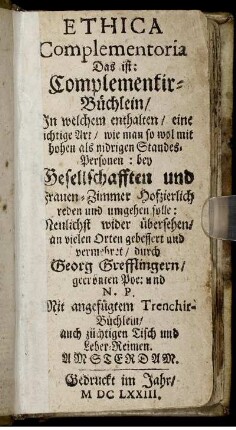 ETHICA
Complementoria
Das ist:
Complementir-
Büchlein/
In welchem enthalten / eine
ichtige Art / wie man so wol mit
hohen als nidrigen Standes-
Personen : bey
Gesellschafften und
Frauen-Zimmer Hofzierlich
reden und umgehen solle:
Neulichst wider übersehen/
an vielen Orten gebessert und
vermehret / durch
Georg Grefflingern/
gecrönten Poet: und
N. P.
Mit angefügtem Trenchir-
Büchlein/
auch züchtigen Tisch und
Leber-Reimen.
AMSTERDAM.
Gedruckt im Jahr/
M DC LXXIII.